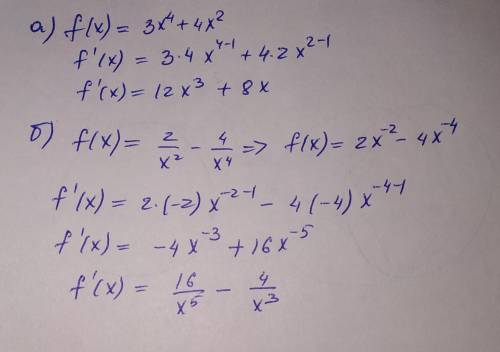 а) f(x) = 3x⁴ + 4x²
f'(x) = 3·4 x⁴⁻¹ + 4·2x²⁻¹
f'(x) = 12x³ + 8x
б) f(x) = 2/x² - 4/x⁴ => f(x) = 2x⁻² - 4x⁻⁴
f'(x) = 2·(-2)x⁻²⁻¹ - 4(-4)x⁻⁴⁻¹
f'(x) = -4x⁻³ + 16x⁻⁵
f'(x) = 16/x⁵ - 4/x³